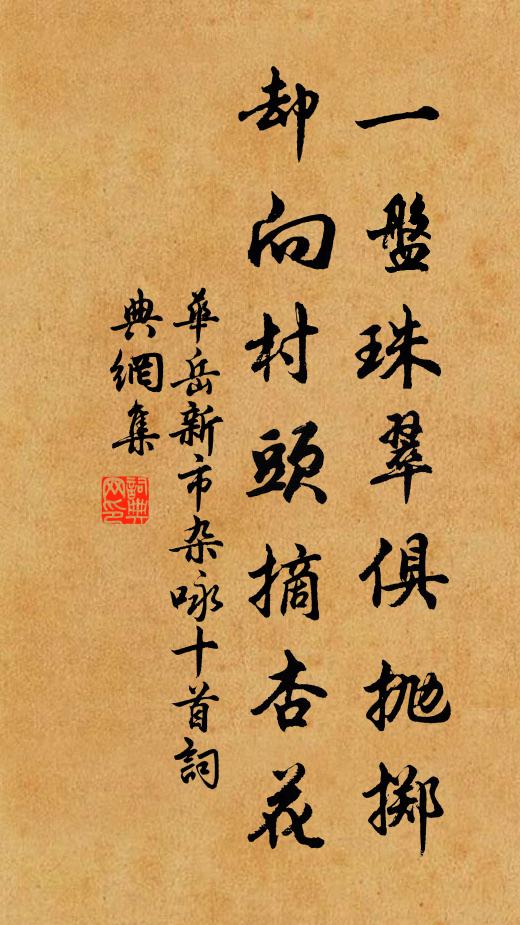 一盤珠翠俱抛擲
却向村頭摘杏花
華岳新市杂咏十首詞
典網集
詞典
网印